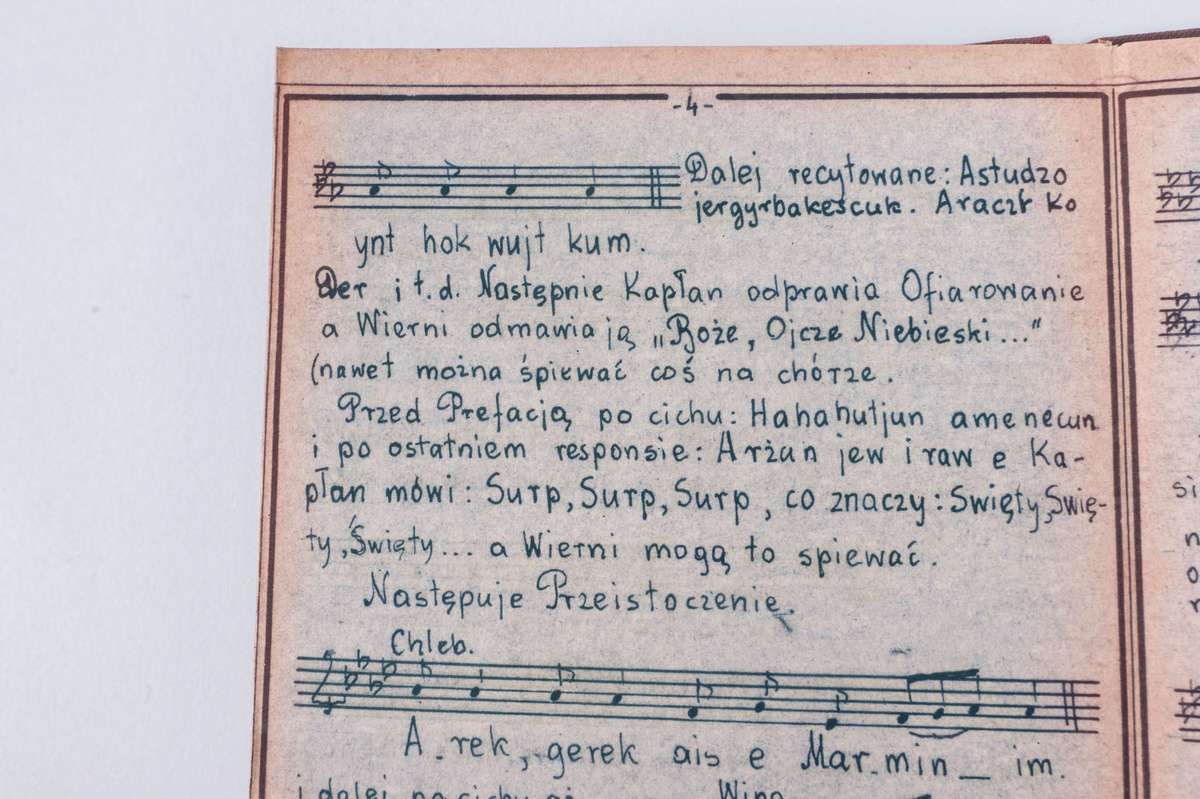 -4-
Dalej recytowane: Astudzo
jergyrbakescuk. Araczr ko
ynt hok wujt kum.
Der i t.d. Następnie Kapłan odprawia Ofiarowanie
a Wierni odmawiają „Boże, Ojcze Niebieski..."
(nawet można śpiewać coś na chórze.
Przed Prefacją po cichu: Hahahutjun amenecun
i po ostatniem responsie: Arżan jew iraw e Ka-
płan mówi: Surp, Surp, Surp, co znaczy: Swięty, Swię-
ty, Święty... a Wierni mogą to spiewać.
Następuje Przeistoczenie.
Chleb.
A.rek, gerek ais e Mar.min_ im.
i dalej po cichu
Wino